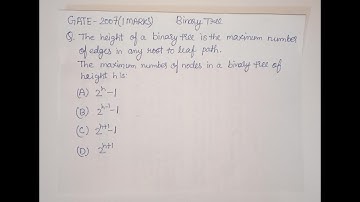 GATE-2007(1 MARKS) Binary Tree
Q. The height of a binary tree is the maximum number
of edges in any root to leaf path.
The maximum number of nodes in a binary tree of
height h is:
(A) 2^h - 1
(B) 2^{h-1} - 1
(C) 2^{h+1} - 1
(D) 2^{h+1}